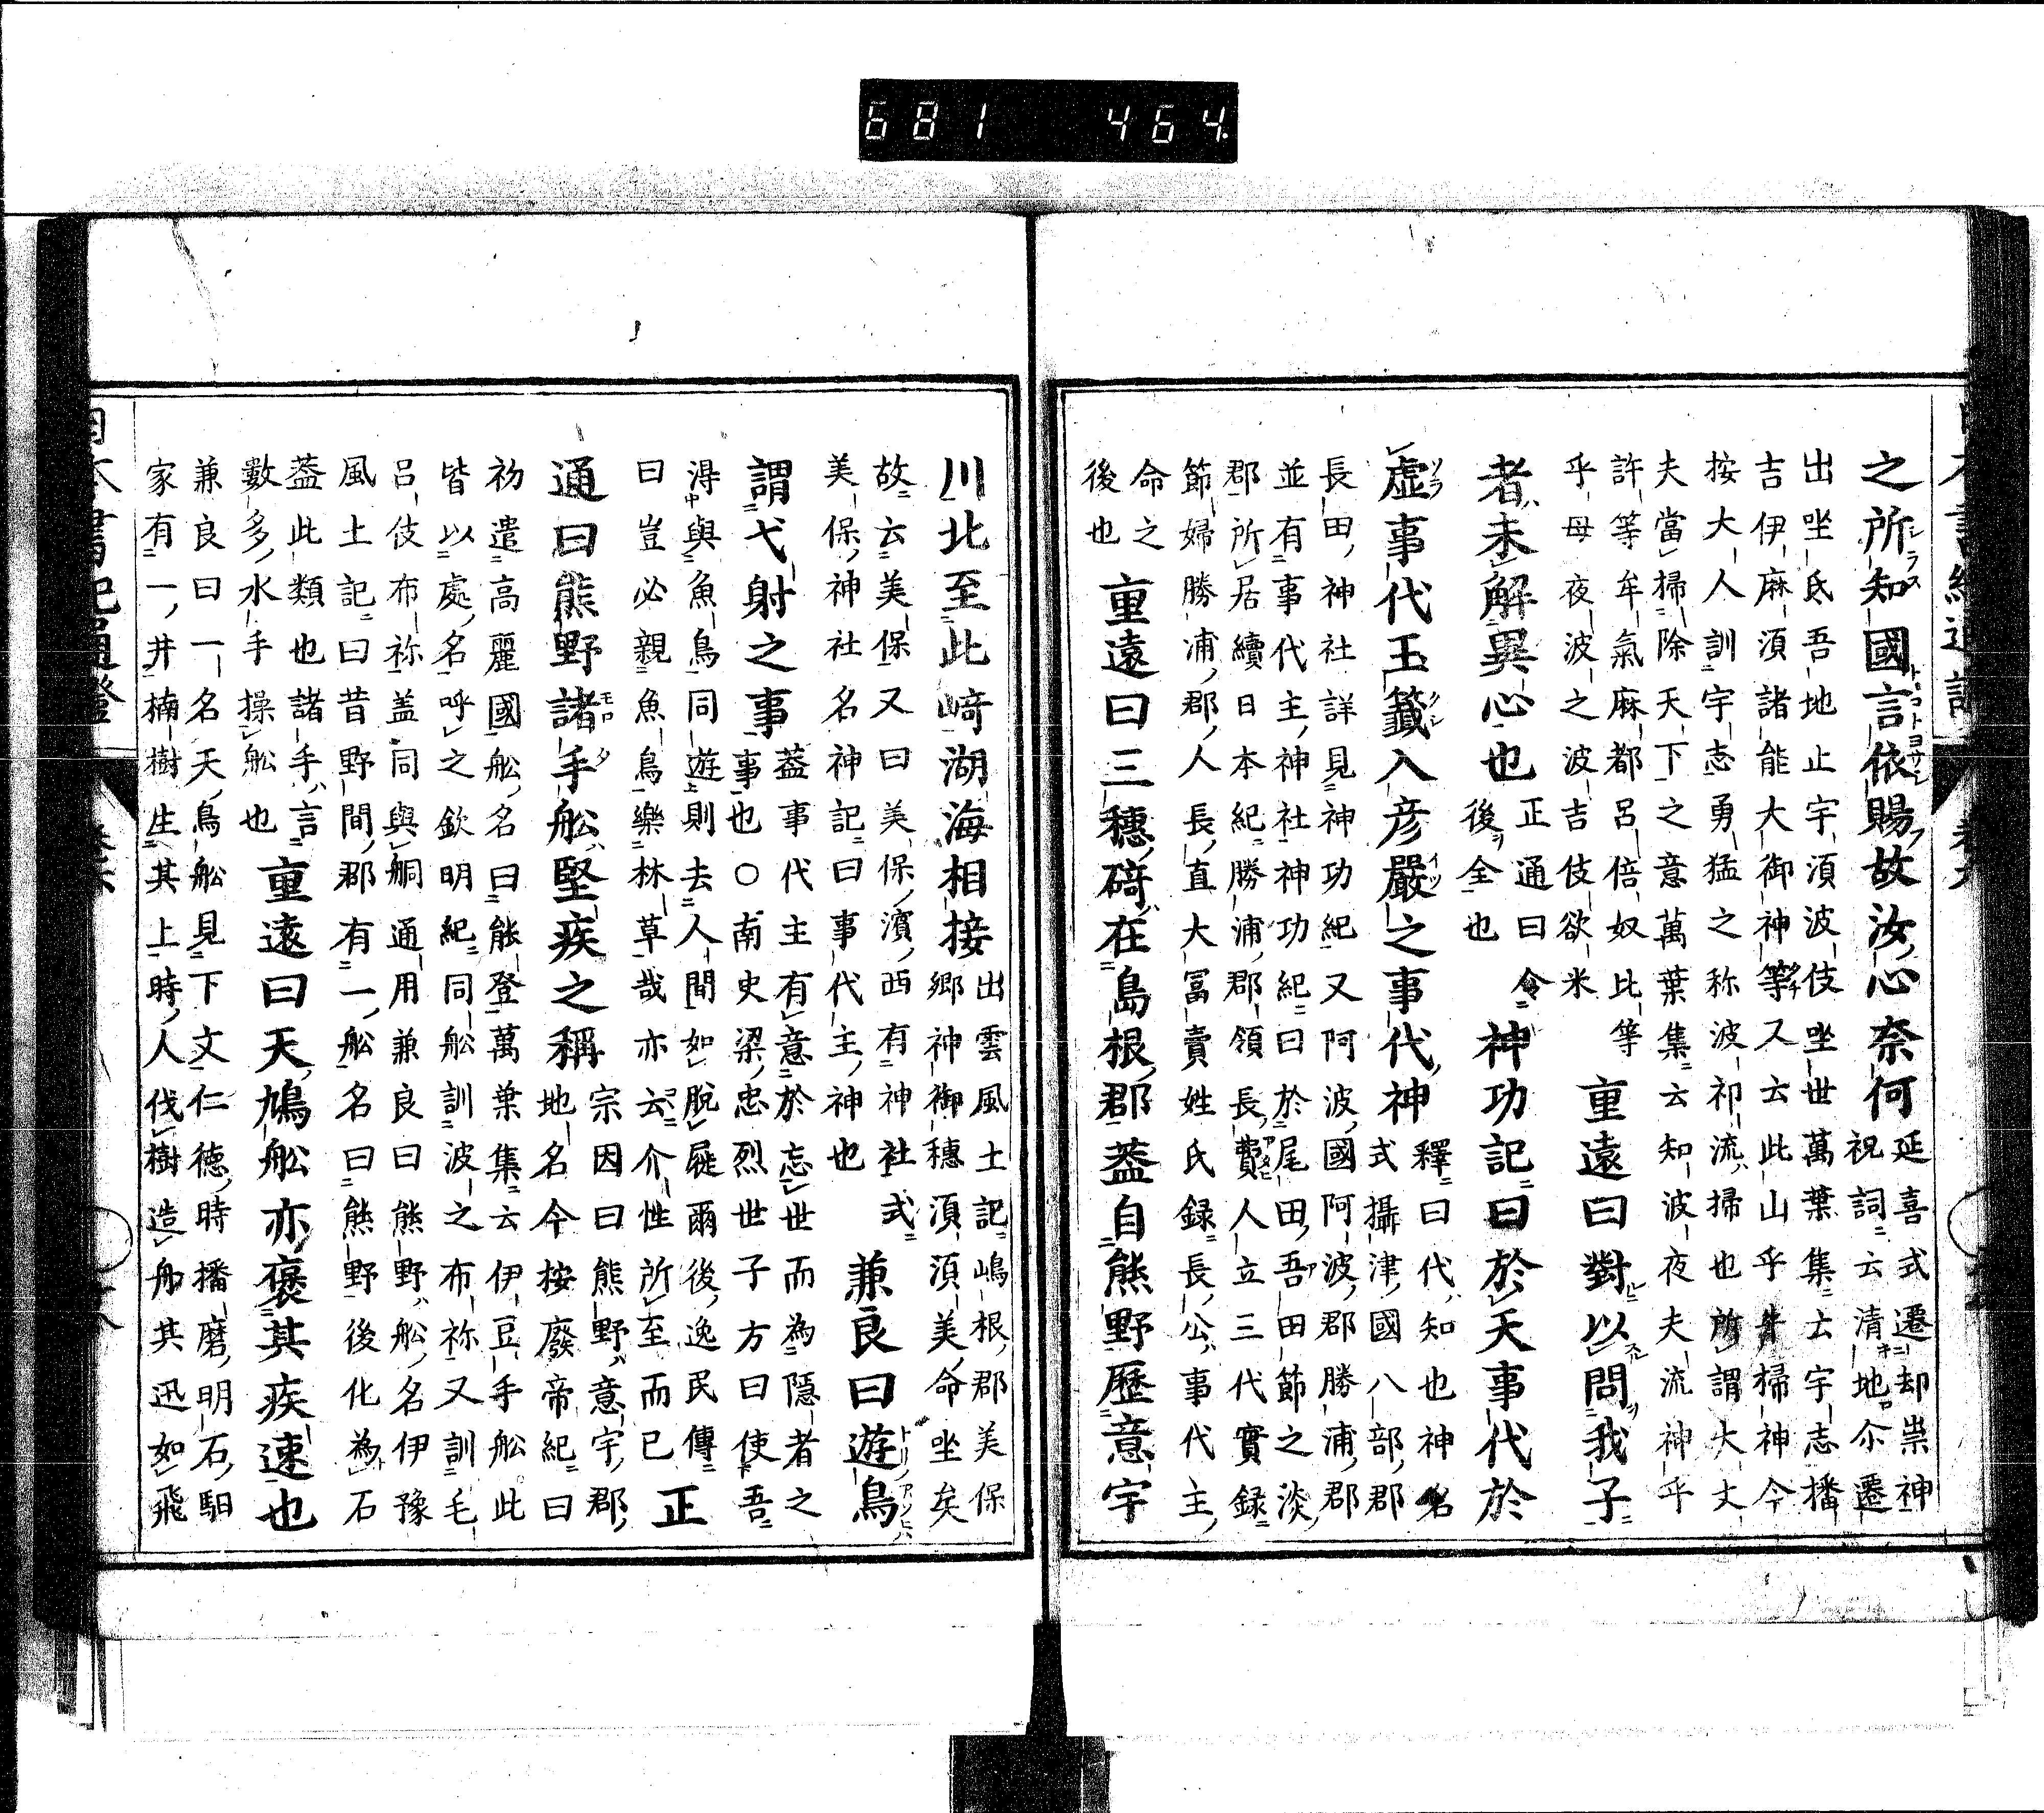 681 464
之所知國言依賜故汝心奈何 延喜式遷却祟神
祝詞云清地尒遷
出坐氐吾地止宇湏波伎坐世萬葉集云宇志播
吉伊麻湏諸能大御神等又云此山乎牛掃神今
按大人訓宇志勇猛之称波祁流掃也所謂大丈
夫當掃除天下之意萬葉集云知波夜夫流神乎
許等牟氣麻都呂倍奴比等
乎母夜波之波吉伎欲米 重遠曰對以問我子
者未解異心也 正通曰令
後全也 神功記曰於天事代於
虚事代玉籤入彦嚴之事代神 釋曰代知也神名
式攝津國八部郡
長田神社詳見神功紀又阿波國阿波郡勝浦郡
並有事代主神社神功紀曰於尾田吾田節之淡
郡所居續日本紀勝浦郡領長費人立三代實録
節婦勝浦郡人長直大冨賣姓氏録長公事代主
命之
後也 重遠曰三穗碕在島根郡蓋自熊野歷意宇
川北至此﨑湖海相接 出雲風土記嶋根郡美保
郷神御穗湏湏美命坐矣
故云美保又曰美保濱西有神社式
美保神社名神記曰事代主神也 兼良曰遊鳥
謂弋射之事 蓋事代主有意於忘世而為隱者之
事也○南史梁忠烈世子方曰使吾
得與魚鳥同遊則去人間如脫屣爾後逸民傳
曰豈必親魚鳥樂林草哉亦云介性所至而已 正
通曰熊野諸手舩堅疾之稱 宗因曰熊野意宇郡
地名今按廢帝紀曰
初遣高麗國舩名曰能登萬葉集云伊豆手舩此
皆以處名呼之欽明紀同舩訓波之布祢又訓毛
呂伎布祢盖同與舸通用兼良曰熊野舩名伊豫
風土記曰昔野間郡有一舩名曰熊野後化為石
蓋此類也諸手言
數多水手操舩也 重遠曰天鳩舩亦褒其疾速也
兼良曰一名天鳥舩見下文仁德時播磨明石駅
家有一井楠樹生其上時人伐樹造舟其迅如飛